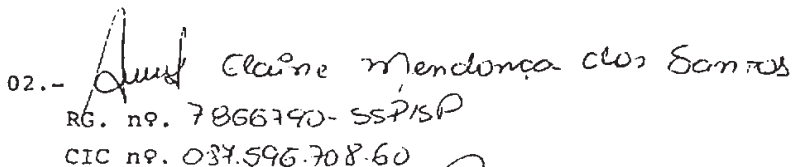 02.- Elaine Mendonça dos Santos
RG. nº. 7866790-SSP/SP
CIC nº. 037.596.708.60